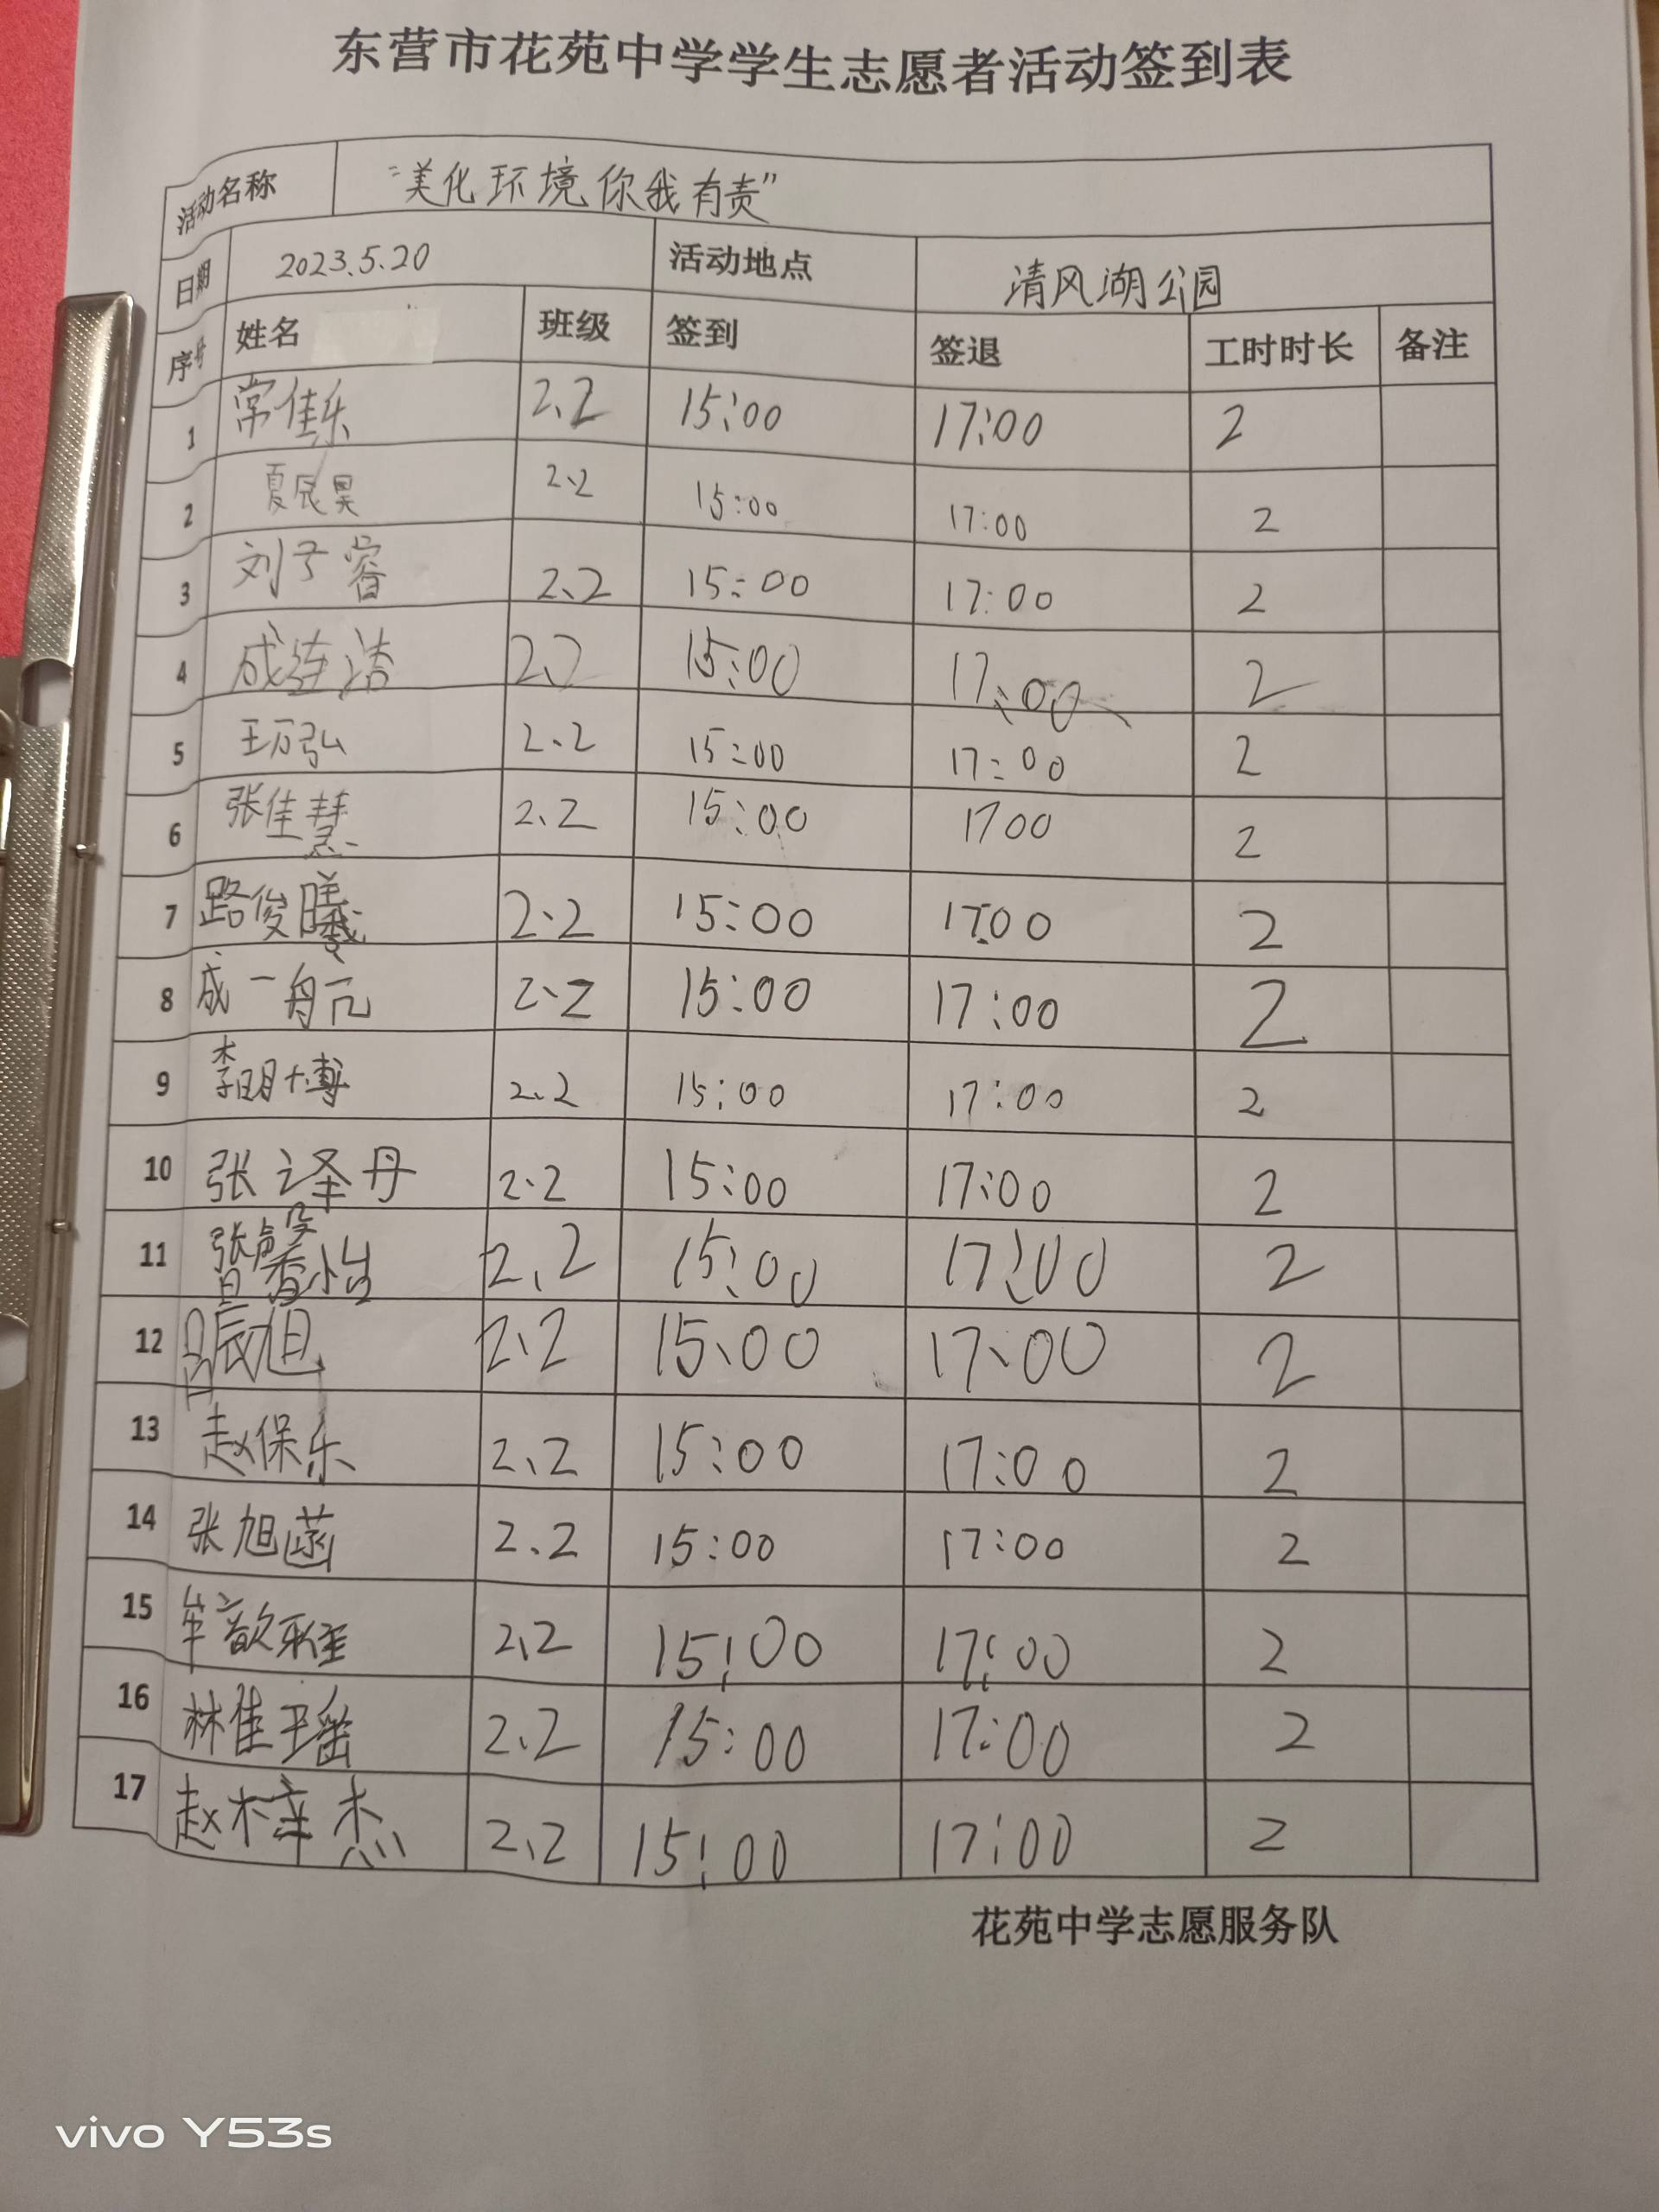 东营市花苑中学学生志愿者活动签到表
活动名称 “美化环境你我有责”
日期 2023.5.20 活动地点 清风湖公园
序号 姓名 班级 签到 签退 工时时长 备注
1 常佳乐 2、2 15:00 17:00 2
2 夏辰昊 2、2 15:00 17:00 2
3 刘子睿 2、2 15:00 17:00 2
4 成连洁 2、2 15:00 17:00 2
5 王万弘 2、2 15:00 17:00 2
6 张佳慧 2、2 15:00 1700 2
7 路俊曦 2、2 15:00 17:00 2
8 成一航 2、2 15:00 17:00 2
9 李明博 2、2 15:00 17:00 2
10 张译丹 2、2 15:00 17:00 2
11 馨怡 2、2 15:00 17:00 2
12 吕辰旭 2、2 15、00 17、00 2
13 赵保乐 2、2 15:00 17:00 2
14 张旭菡 2、2 15:00 17:00 2
15 牟歆程 2、2 15:00 17:00 2
16 林佳瑶 2、2 15:00 17:00 2
17 赵梓杰 2、2 15:00 17:00 2
花苑中学志愿服务队
vivo Y53s